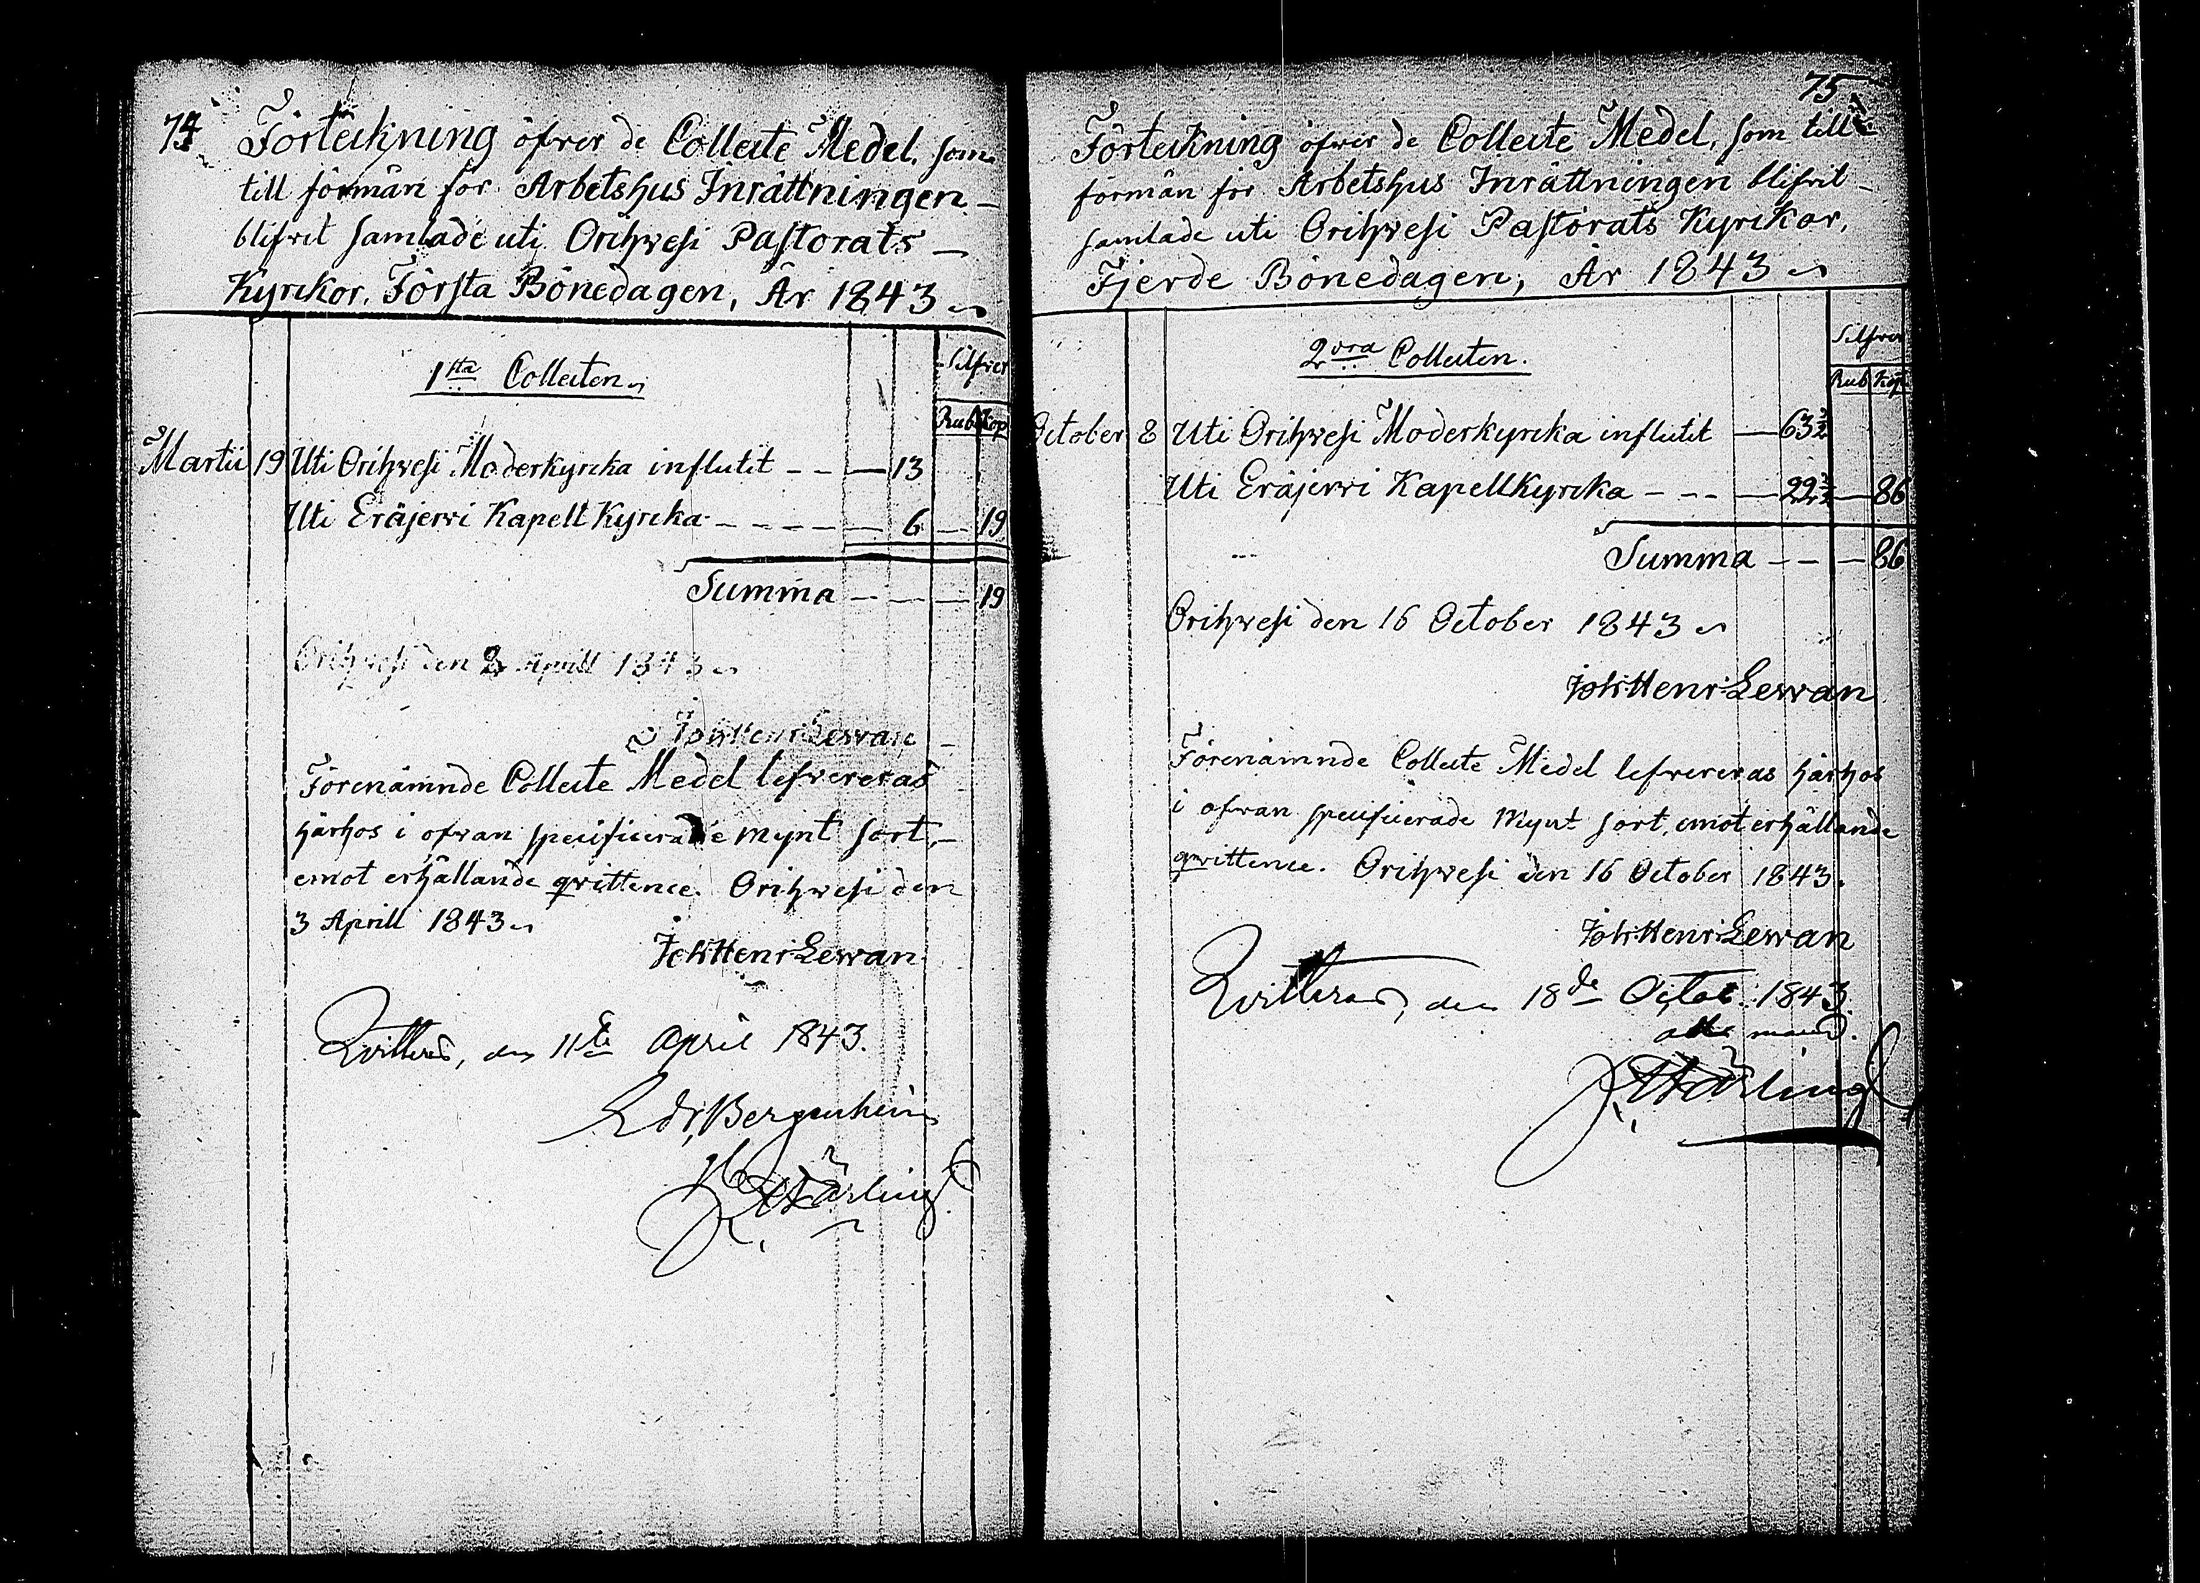 74
Förteckning öfver de Collecte Medel, som
till förmån för Arbetshus Inrättningen
blifvit samlade uti Orihvesi Pastorats
Kyrckor, Första Bönedagen, År 1843
1sta Collecten
Silfver
Rub Kop
Martii 19 Uti Orihvesi Moderkyrcka influtit - - — 13
Uti Eräjervi Kapell Kyrcka - - - - - — 6 — 19
Summa - - — — 19
Orihvesi den 2 Aprill 1843
Joh: Henr: Lewan
Förenämnde Collecte Medel lefvereras
härhos i ofvan specificerade Mynt sort,
emot erhållande qvittence. Orihvesi den
3 Aprill 1843
Joh: Henr: Lewan
Qvitteras, den 11te April 1843.
Edv, Bergenheim
75
Förteckning öfver de Collecte Medel, som till
förmån för Arbetshus Inrättningen blifvit
samlade uti Orihvesi Pastorats Kyrckor,
Fjerde Bönedagen, År 1843
2dra Collecten.
Silfver
Rub Kop
October 8 Uti Orihvesi Moderkyrcka influtit — 63½
Uti Eräjervi Kapell Kyrcka - - - — 22½ — 86
Summa - - — 86
Orihvesi den 16 October 1843
Joh: Henr: Lewan
Förenämnde Collecte Medel lefvereras härhos
i ofvan specificerade Mynt sort, emot erhållande
qvittence. Orihvesi den 16 October 1843.
Joh: Henr: Lewan
Qvitteras, den 18de Octob. 1843.